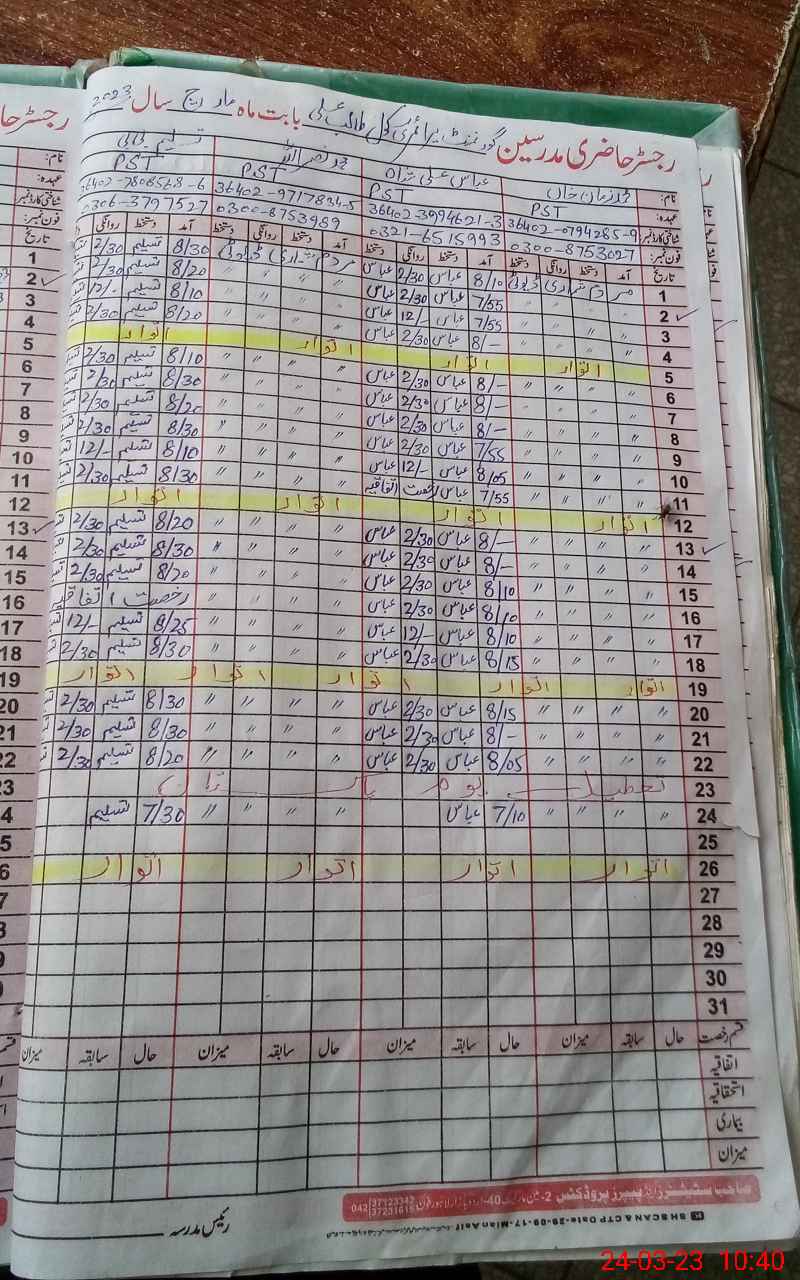 رجسٹر حاضری مدرسین گورنمنٹ پرائمری سکول طالب علی بابت ماہ مارچ سال 2023
نام: محمد زمان خاں عباس علی شاہ محمد نصر اللہ تسلیم بی بی
عہدہ: PST PST PST PST
شناختی کارڈ نمبر: 36402-0794285-9 36402-3994621-3 36402-9717834-5 36402-7808568-6
فون نمبر: 0300-8753027 0321-6515993 0300-8753989 0306-3797527
تاریخ آمد دستخط روانگی دستخط آمد دستخط روانگی دستخط آمد دستخط روانگی دستخط آمد دستخط روانگی
1 مردم شماری ڈیوٹی 8/10 عباس 2/30 عباس مردم شماری ڈیوٹی 8/30 تسلیم 2/30
2 〃 〃 〃 〃 7/55 عباس 2/30 عباس 〃 〃 〃 〃 8/20 تسلیم 2/30
3 〃 〃 〃 〃 7/55 عباس 12/- عباس 〃 〃 〃 〃 8/10 تسلیم 12/-
4 〃 〃 〃 〃 8/- عباس 2/30 عباس 〃 〃 〃 〃 8/20 تسلیم 2/30
5 اتوار اتوار اتوار اتوار
6 〃 〃 〃 〃 8/- عباس 2/30 عباس 〃 〃 〃 〃 8/10 تسلیم 2/30
7 〃 〃 〃 〃 8/- عباس 2/30 عباس 〃 〃 〃 〃 8/30 تسلیم 2/30
8 〃 〃 〃 〃 8/- عباس 2/30 عباس 〃 〃 〃 〃 8/20 تسلیم 2/30
9 〃 〃 〃 〃 7/55 عباس 2/30 عباس 〃 〃 〃 〃 8/30 تسلیم 2/30
10 〃 〃 〃 〃 8/05 عباس 12/- عباس 〃 〃 〃 〃 8/10 تسلیم 12/-
11 〃 〃 〃 〃 7/55 عباس رخصت اتفاقیہ 〃 〃 〃 〃 8/30 تسلیم 2/30
12 اتوار اتوار اتوار اتوار
13 〃 〃 〃 〃 8/- عباس 2/30 عباس 〃 〃 〃 〃 8/20 تسلیم 2/30
14 〃 〃 〃 〃 8/- عباس 2/30 عباس 〃 〃 〃 〃 8/30 تسلیم 2/30
15 〃 〃 〃 〃 8/10 عباس 2/30 عباس 〃 〃 〃 〃 8/20 تسلیم 2/30
16 〃 〃 〃 〃 8/10 عباس 2/30 عباس 〃 〃 〃 〃 رخصت اتفاقیہ
17 〃 〃 〃 〃 8/10 عباس 12/- عباس 〃 〃 〃 〃 8/25 تسلیم 12/-
18 〃 〃 〃 〃 8/15 عباس 2/30 عباس 〃 〃 〃 〃 8/30 تسلیم 2/30
19 اتوار اتوار اتوار اتوار اتوار اتوار
20 〃 〃 〃 〃 8/15 عباس 2/30 عباس 〃 〃 〃 〃 8/30 تسلیم 2/30
21 〃 〃 〃 〃 8/- عباس 2/30 عباس 〃 〃 〃 〃 8/30 تسلیم 2/30
22 〃 〃 〃 〃 8/05 عباس 2/30 عباس 〃 〃 〃 〃 8/20 تسلیم 2/30
23 تعطیل یوم پاکستان
24 〃 〃 〃 〃 7/10 عباس 〃 〃 〃 〃 7/30 تسلیم
25
26 اتوار اتوار اتوار اتوار
27
28
29
30
31
قسم رخصت حال سابقہ میزان حال سابقہ میزان حال سابقہ میزان حال سابقہ میزان
اتفاقیہ
استحقاقیہ
بیماری
میزان
صاحب سٹیشنرز اینڈ پیپرز پروڈکٹس 042 37123342 37231615
BH SCAN & CTP Date-29-09-17-Mian Asif
رئیس مدرسہ
24-03-23 10:40